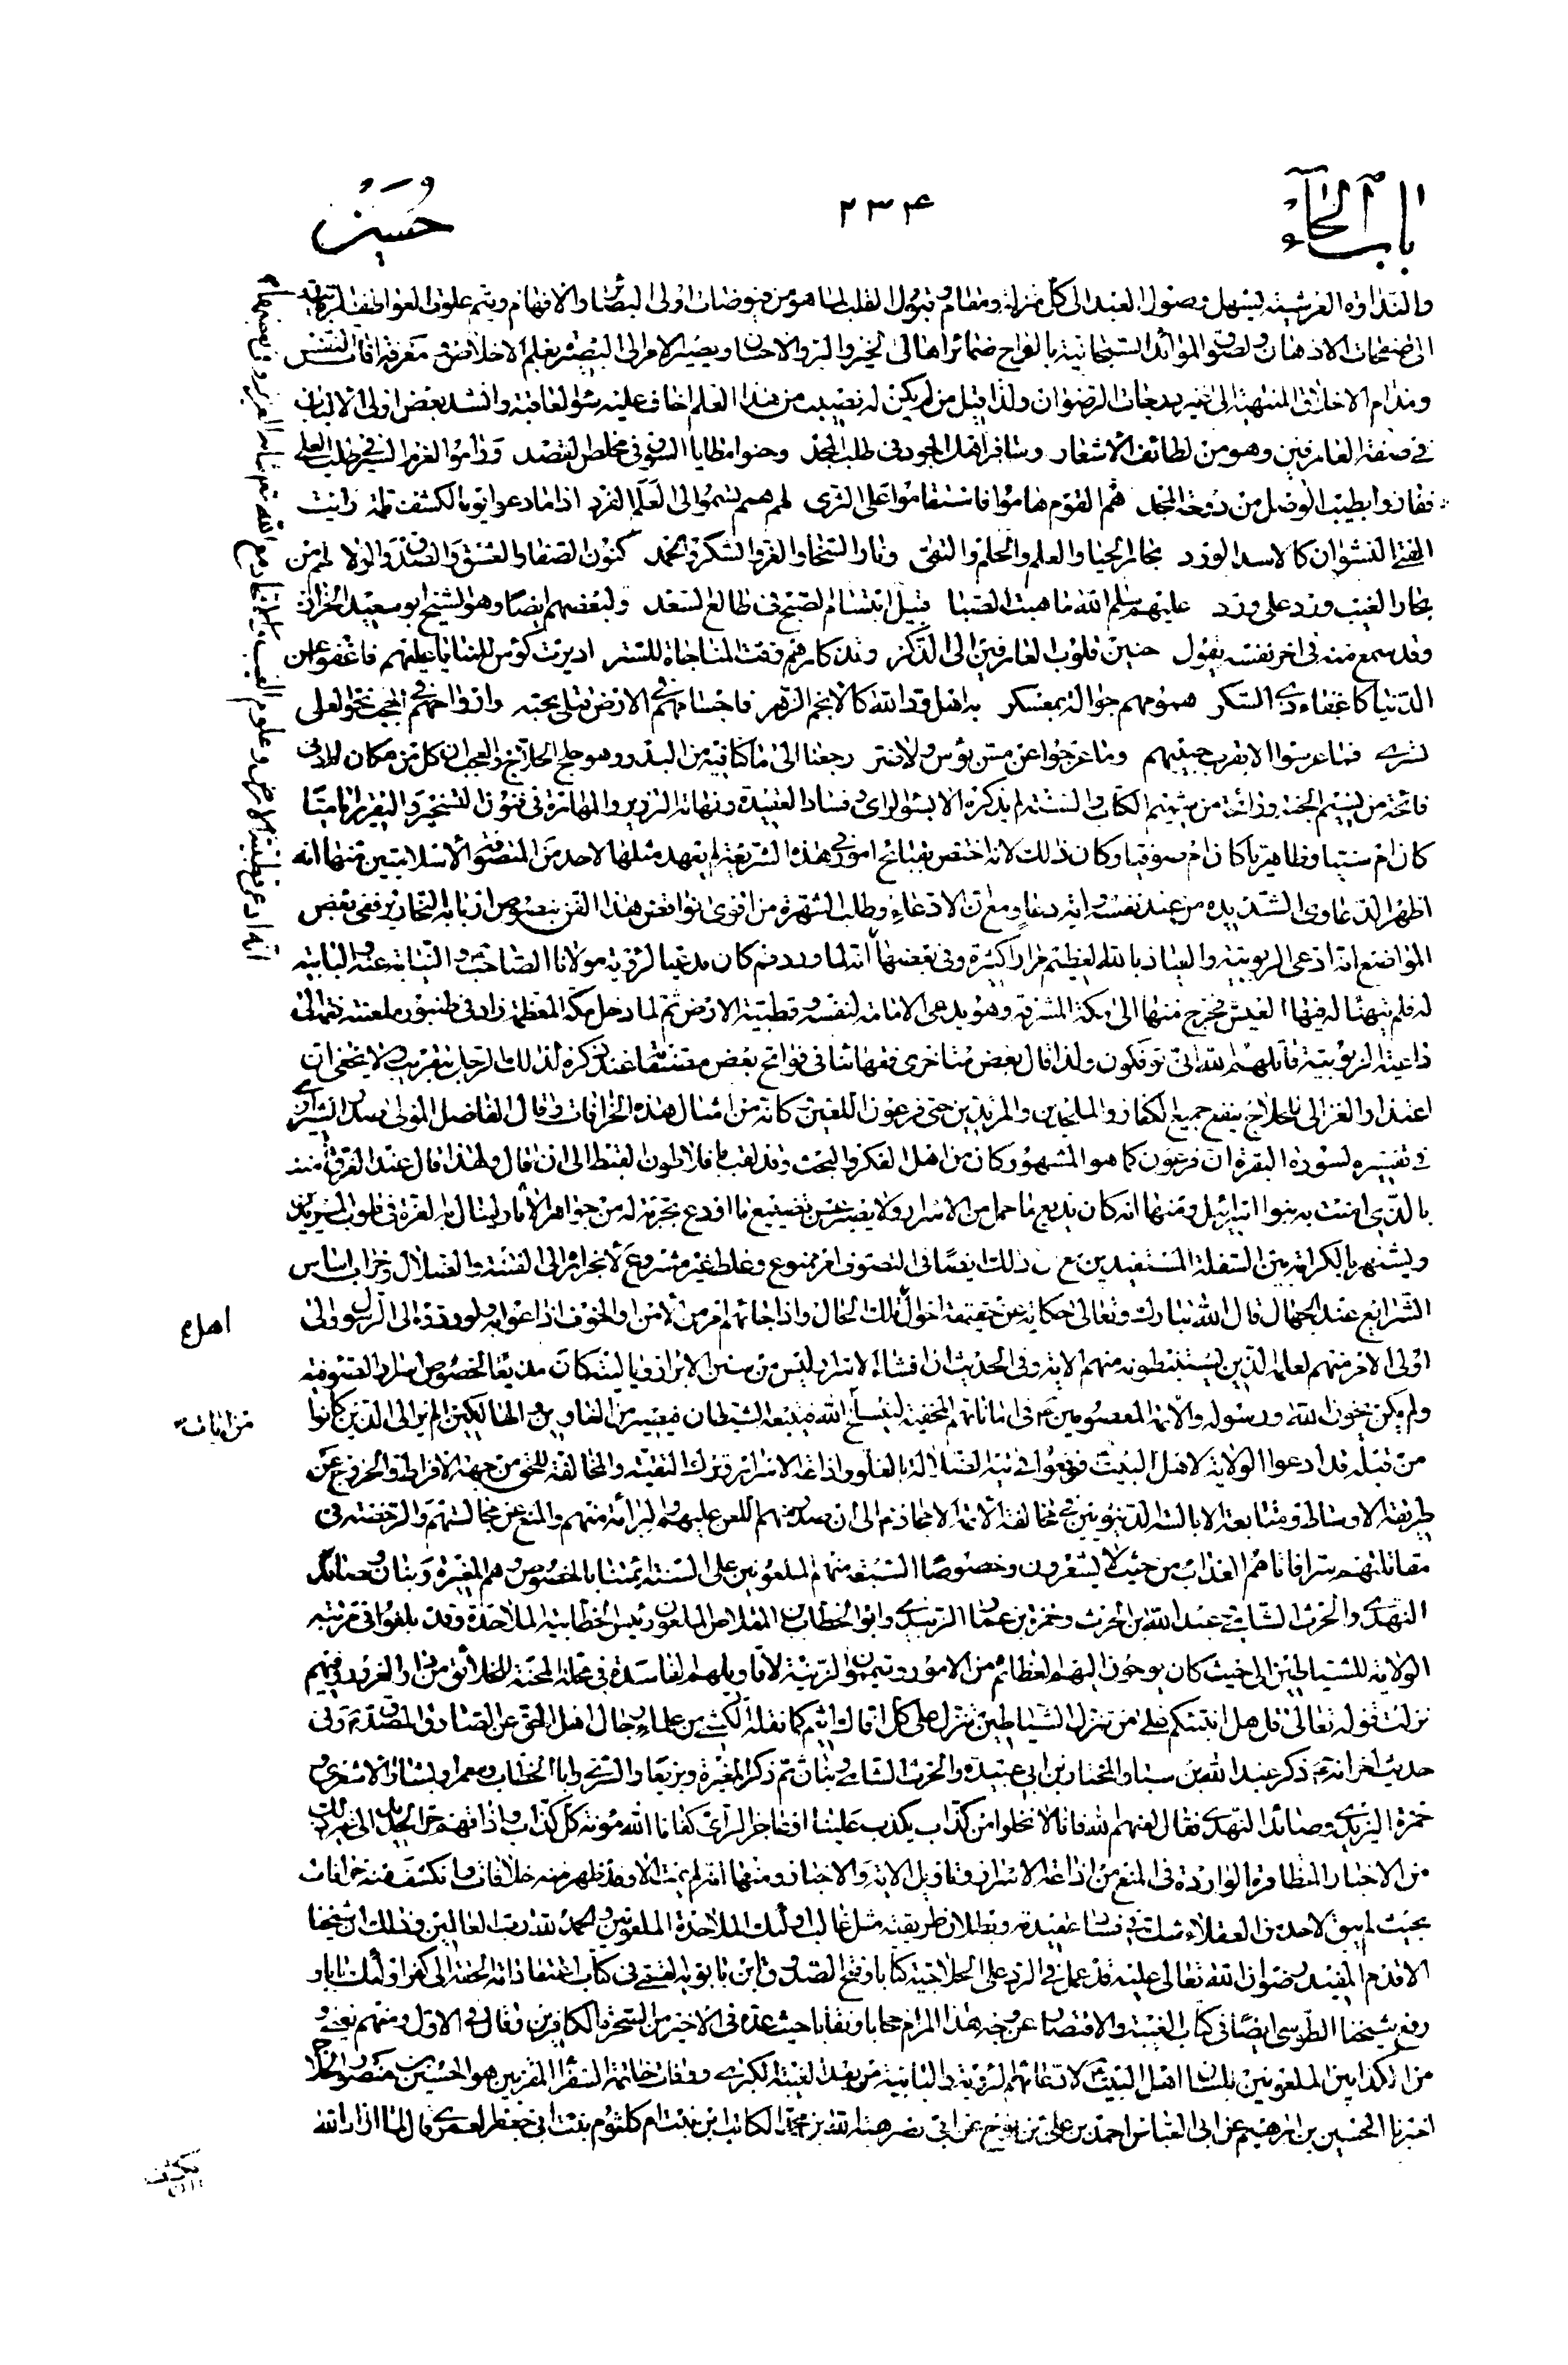 باب الحاء
٢٣۴
حسين
والنداوة العرشية ليسهل وصول العبد الى كل منزلة ومقام وقبول القلب لما هو من فيوضات اولى البصائر والافهام ويتم علوق العواطف الربانية
الى صفحات الاذهان ولصوق الموائد السبحانية بالواح ضمائر اهالى الخير والبر والاحسان ويصير الامر الى التبصر بعلم الاخلاص ومعرفة افات النفس
ومذام الاخلاق المنتهية الى غير درجات الرضوان ولذا قيل من لم يكن له نصيب من هذا العلم اخاف عليه سوء العاقبة وانشد بعض اولى الالباب
فى صفة العارفين وهو من لطائف الأشعار وسافر اهل الجود فى طلب المجد وحنوا مطايا الشوق فى مخلص القصد وراموا العزم السير فى طلب العلى
ففازوا بطيب الوصل من دوحة المجد هم القوم هاموا فاستقاموا على الثرى لهم همم تسموا الى العلم الفرد اذا ما دعوا يوما لكشف ملمة رايت
الفتى النشوان كالاسد الورد بحار الحيا والعلم والحلم والتقى ونار السخا والعز والشكر والحمد كنوز الصفا والعشق والصدق والولا لهم من
بحار الغيب ورد على ورد عليهم سلم الله ما هبت الصبا قبيل ابتسام الصبح فى طالع السعد ولبعضهم ايضا وهو الشيخ ابو سعيد الخراز
وقد سمع منه فى اخر نفسه يقول حنين قلوب العارفين الى الذكر وتذكارهم وقت المناجاة للسر اديرت كؤس للمنايا عليهم فاغفوا عن
الدنيا كاغفاء ذى السكر همومهم جوالة بمعسكر به اهل ود الله كالانجم الزهر فاجسامهم فى الارض قتلى بحبه وارواحهم فى الحجب نحو العلى
تسرى فما عرسوا الا بقرب حبيبهم وما عرجوا عن مس بؤس ولا ضر رجعنا الى ما كنا فيه من البدو وهو حلج الحلاج والعجب ان كل من كان له ادنى
فائحة من نسيم الجنة ورائحة من شميم الكتاب والسنة لم يذكره الا بسوء الراى وفساد العقيدة ونهاية التزوير والمهارة فى فنون التسخير والتغرير اماميا
كان ام سنيا وظاهريا كان ام صوفيا وكان ذلك لانه اختص بقبائح امور فى هذه الشريعة لم يعهد مثلها لاحد من المتصوفة الأسلاميين منها انه
اظهر الدعاوى الشديدة من عند نفسه وانه دعا ومع ان الادعاء وطلب الشهرة من اقوى نواقض هذا الفن بنصوص اربابه النحارير ففى بعض
المواضع انه ادعى الربوبية والعياذ بالله العظيم مرارا كثيرة وفى بعضها انه لما ورد قم كان مدعيا لرؤية مولانا الصاحب والنيابة عنه والبابية
له فلم يتهنا له فيها العيش فخرج منها الى مكة المشرفة وهو يدعى الامامة لنفسه وقطبية الارض ثم لما دخل مكة المعظمة زاد فى طنبور ملعنته نغمة
داعية الربوبية قاتلهم الله انى يؤفكون ولذا قال بعض متاخرى فقهائنا فى فواتح بعض مصنفاته عند ذكره لذلك الرجل بتقريب لا يخفى ان
اعتذار الغزالى للحلاج ينفع جميع الكفار والملحدين والمرتدين حتى فرعون اللعين كانه من امثال هذه الخرافات وقال الفاضل المولى صدرا الشيرازى
فى تفسيره لسورة البقرة ان فرعون كما هو المشهور كان من اهل الفكر والبحث وقد لقب بافلاطون القبط الى ان قال ولهذا قال عند الغرق امنت
بالذى امنت به بنوا اسرائيل ومنها انه كان يذيع ما حمل من الاسرار ولا يصبر عن تضييع ما اودع بحرمة له من جواهر الأثار لينال به العزة فى قلوب المريدين
ويشتهر بالكرامة بين السفلة المستفيدين مع ان ذلك ايضا فى التصوف امر ممنوع وغلط غير مشروع لأنجراره الى الفتنة والضلال وخراب اساس
الشرايع عند الجهال قال الله تبارك وتعالى حكاية عن حقيقة احوال تلك الحال واذا جائهم امر من الأمن او الخوف اذاعوا به ولو ردوه الى الرسول والى
اولى الامر منهم لعلمه الذين يستنبطونه منهم الاية وفى الحديث ان افشاء الاسرار ليس من سنن الابرار فيا ليته كان مذيعا لخصوص اسرار الصوفية
ولم يكن يخون الله ورسوله والائمة المعصومين ع فى اماناتهم المخفية لينسلخ الله فيتبعه الشيطان فيصير من الغاوين والهالكين الم تر الى الذين كانوا
من قبله قد ادعوا الولاية لاهل البيت فوقعوا فى تيه الضلالة بالغلو واذاعة الاسرار وترك التقية والمخالفة للحق من جهة الافراط والخروج عن
طريقة الاوساط ومتابعة الابالسة الدنيويين فى مخالفة الأئمة الامجاد ذم الى ان صدر منهم اللعن عليهم والبرائة منهم والمنع عن مجالستهم والرخصة فى
مقاتلتهم سرا فاتاهم العذاب من حيث لا يشعرون وخصوصا السبعة منهم الملعونين على السنة ائمتنا بالخصوص وهم المغيرة وبنان وصائد
النهدى والحرث الشامى وعبد الله بن الحرث وحمزة بن عمار الزبيدى وابو الخطاب المقلاص الملعون رئيس الخطابية الملاحدة وقد بلغوا فى مرتبة
الولاية للشياطين الى حيث كان يوحون اليهم العظائم من الامور
نزلت قوله تعالى قل هل انبئكم على من تنزل الشياطين تنزل على كل افاك اثيم كما نقله الكشى من علماء رجال اهل الحق عن الصادق المصدق ع وفى
حديث اخر انه ع ذكر عبد الله بن سبا والمختار بن ابى عبيدة والحرث الشامى وبنان ثم ذكر المغيرة وبزيعا والسرى وابا الخطاب ومعمرا وبشار الاشعرى و
حمزة اليزيدى وصائد النهدى فقال لعنهم الله فانا لا نخلوا من كذاب يكذب علينا او عاجز الراى كفانا الله مؤنة كل كذاب واذاقهم حر الحديد الى غير ذلك
من الاخبار المتظافرة الواردة فى المنع من اذاعة الاسرار وتاويل الاية والاخبار ومنها انه لم يمت الا وقد ظهر منه خلافات وانكشف منه خرافات
بحيث لم يبق لاحد من العقلاء شك فى فساد عقيدته وبطلان طريقته مثل غالب اولئك الملاحدة الملعونين والحمد لله رب العالمين وذلك ان شيخنا
الاقدم المفيد رضوان الله تعالى عليه قد عمل فى الرد على الحلاجية كتابا وفتح الصدوق ابن بابويه القمى فى كتاب اعتقاداته الحقة الى كفر اولئك بابا و
رفع شيخنا الطوسى ايضا فى كتاب الغيبة والاقتصاد عن وجه هذا المرام حجابا ونقابا حيث عده فى الاخير من السحرة الكافرين وقال فى الاول ومنهم يعنى و
من الكذابين الملعونين بلسان اهل البيت ع لادعائهم الرؤية والبابية من بعد الغيبة الكبرى ووفات خاتمة السفراء المقربين هو الحسين بن منصور الحلاج
اخبرنا الحسين بن ابرهيم عن ابى العباس احمد بن على بن نوح عن ابى نصر هبة الله بن محمد الكاتب ابن بنت ام كلثوم بنت ابى جعفر العمرى قال لما اراد الله
اهل ع